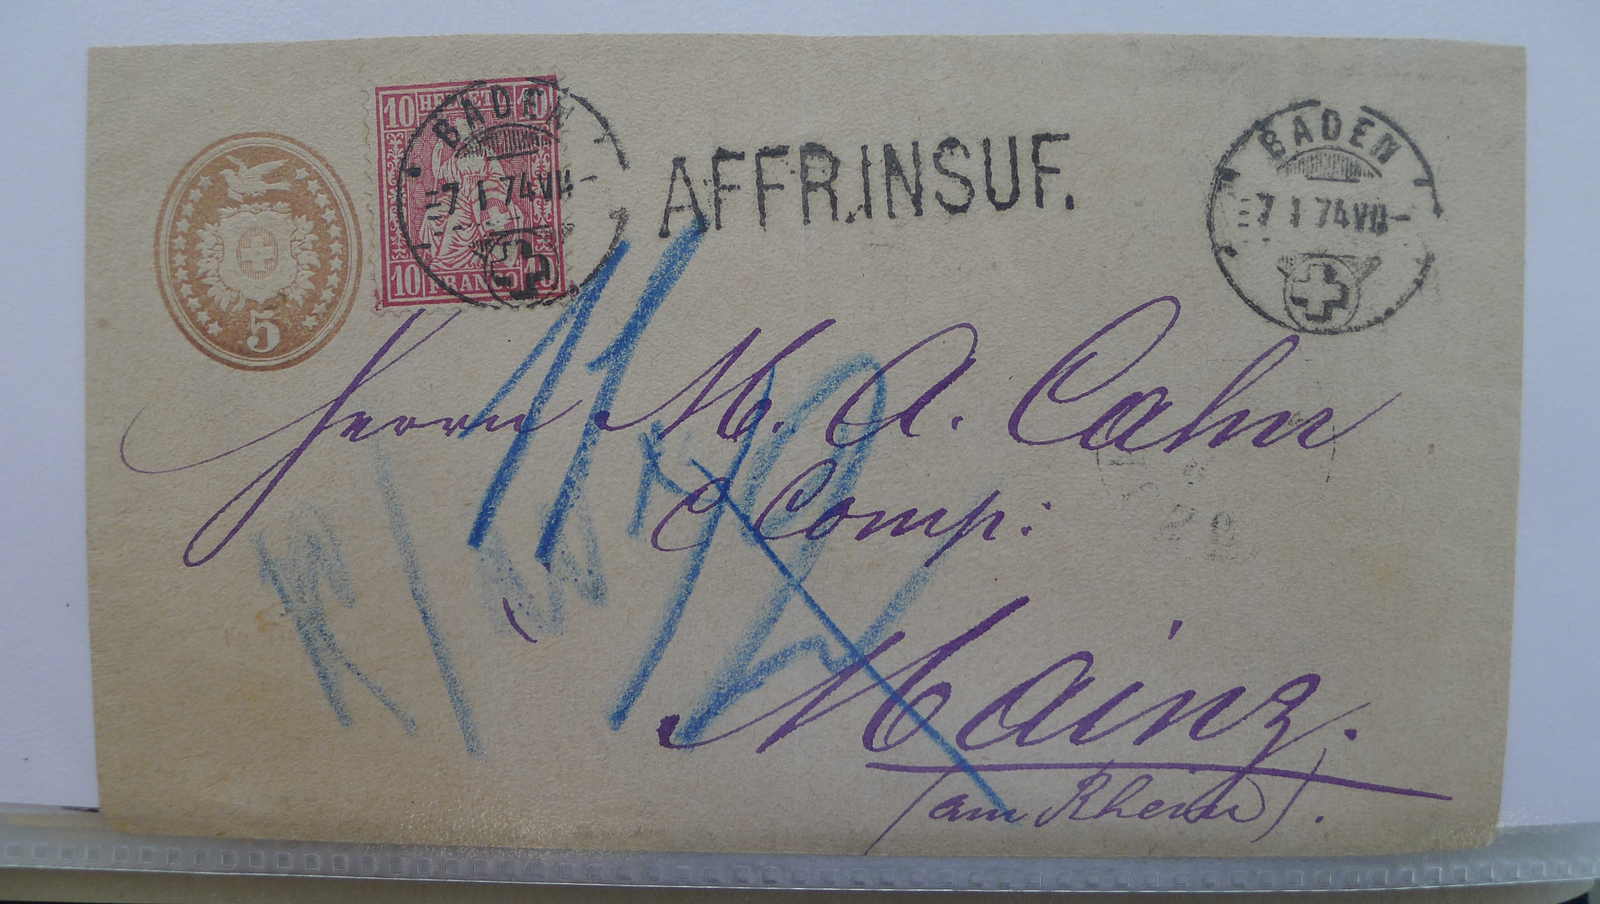 10 HELVETIA 10
10 FRANCO 10
5
BADEN
-7 I 74 VII-
AFFR.INSUF.
BADEN
-7 I 74 VII-
11
Herrn M. A. Cahn
& Comp:
Mainz.
(am Rhein).